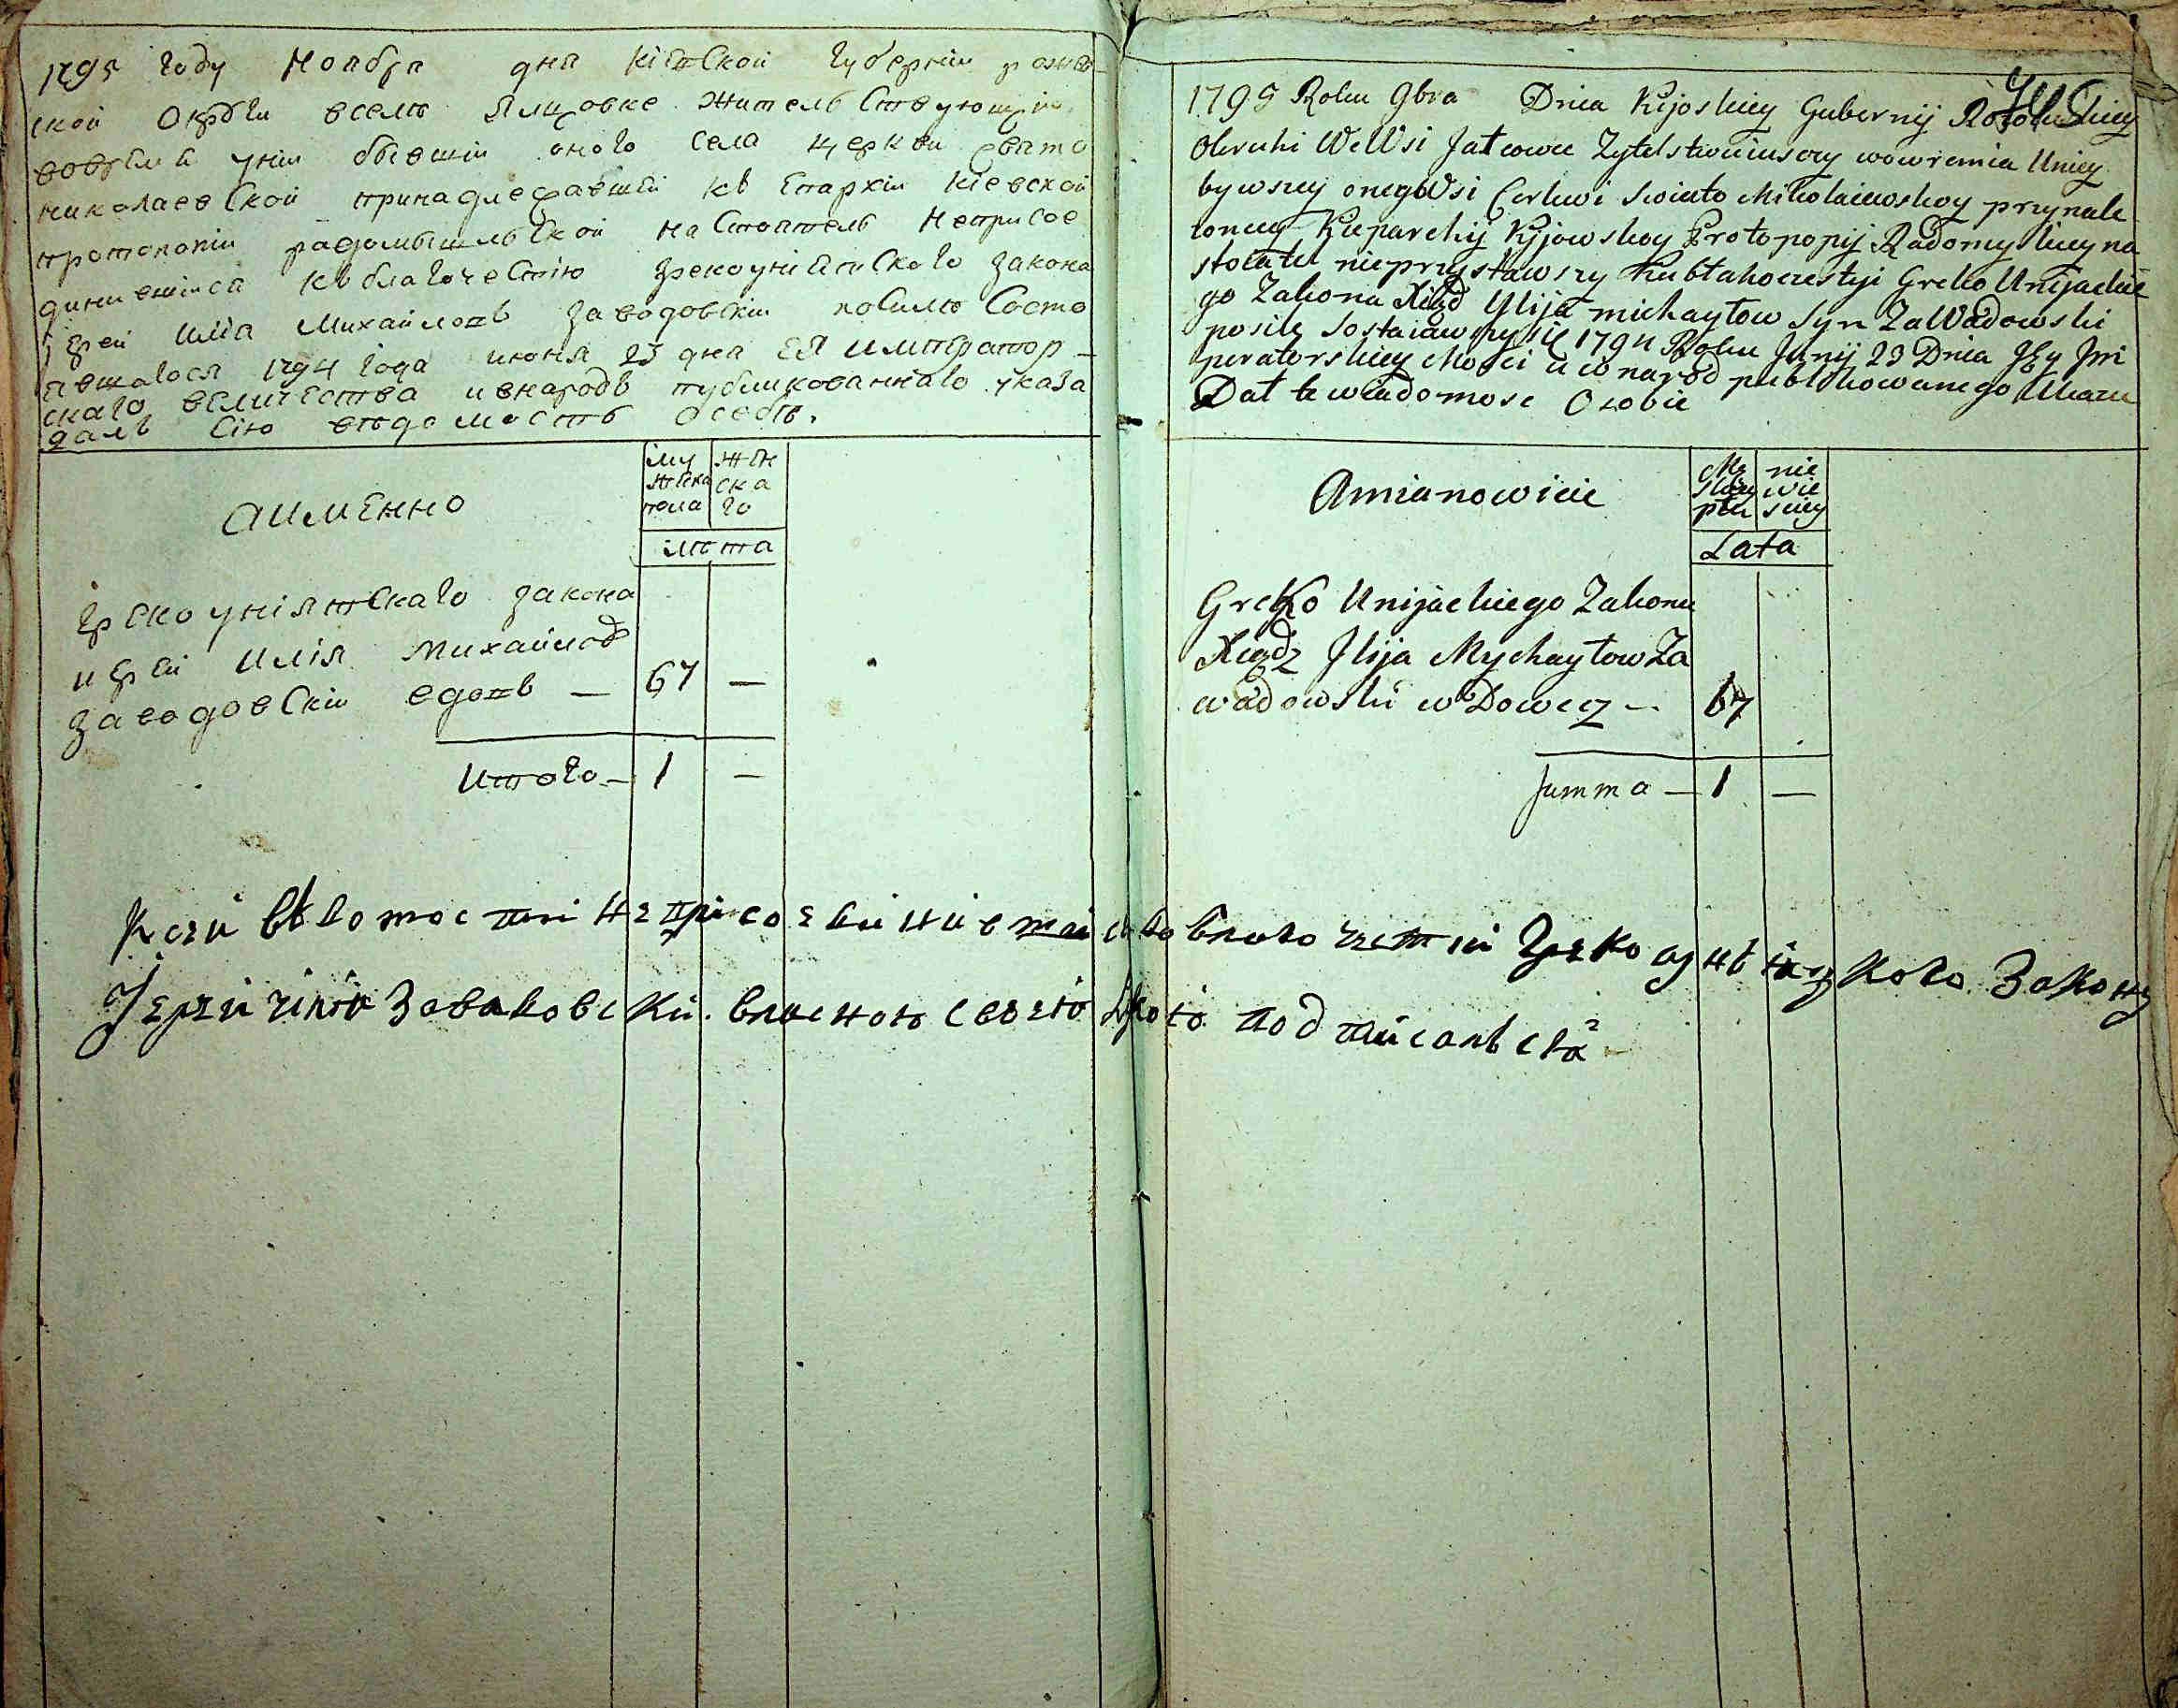 1795 году Ноября дня Кіевской губерніи рожев-
ской округи вселѣ Ялцовке жительствующій
вовремя уніи бывшій оного села церкви свято
николаевской принадлежавшей къ Епархіи Кіевской
протопопіи радомышльской настоятель неприсое
динившійся къ благочестію грекоуніятскаго закона
іерей Илія Михайловъ Заводовскій посилѣ Состо
явшагося 1794 года июня 23 дня ЕЯ император-
скаго величества ивнародъ публикованнаго указа
далъ сію вѣдомость осебѣ.
аимЕнно
му
жеска
пола
жен
ска
го
лѣта
Грекоуніятскаго закона
иерей Илія Михайловъ
Заводовскій вдовъ — 67 —
Итого — 1 —
1795 Roku 9bra Dnia Kijoskiey Gubernij
Okruhi WeWsi Jatcowce Zytelstwuiuszczy wowremia Uniey
bywszey onegoWsi Cerkwi Swiato Mikolaiewskoy przynale
zoncey Kieparchij Kyjowskoy Protopopij Radomyskiey na
stoiatel nieprzystawszy Kubłahoczestyi Greko Unijackie
go Zakona Xiądz Ylija michayłow Syn ZaWadowski
posile sostaiawszy się 1794 Roku Junij 23 Dnia JEy Jm
peratorskiey Mosci i wnarod publikowanego Ukazu
Dał te wiadomosc Osobie
Amianowicie
Mę
skiey
płci
nie
wie
sciey
Lata
Greko Unijackiego Zakonu
Xiądz Jlija Mychayłow Za
wadowski wDowiec — 67
Summa — 1 —
Ксей вѣдомости неприсоединившійся ко благочестїи Греко унѣяцкого Закону
Іерей Илія Завадовскій власною своею рукою подписалься